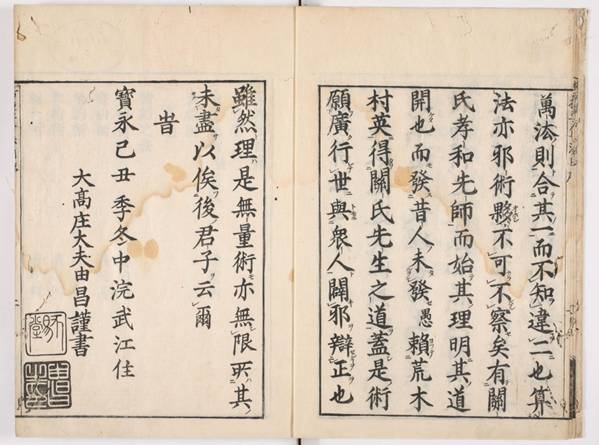 萬法則合其一而不知違二也算
法亦邪術夥不可不察矣有關
氏孝和先師而始其理明其道
開也而發昔人未發愚賴荒木
村英得關氏先生之道蓋是術
願廣行世與衆人闢邪辯正也
雖然理是無量術亦無限㪽其
未盡以俟後君子云爾
旹
寶永己丑季冬中浣武江住
大高庄大夫由昌謹書